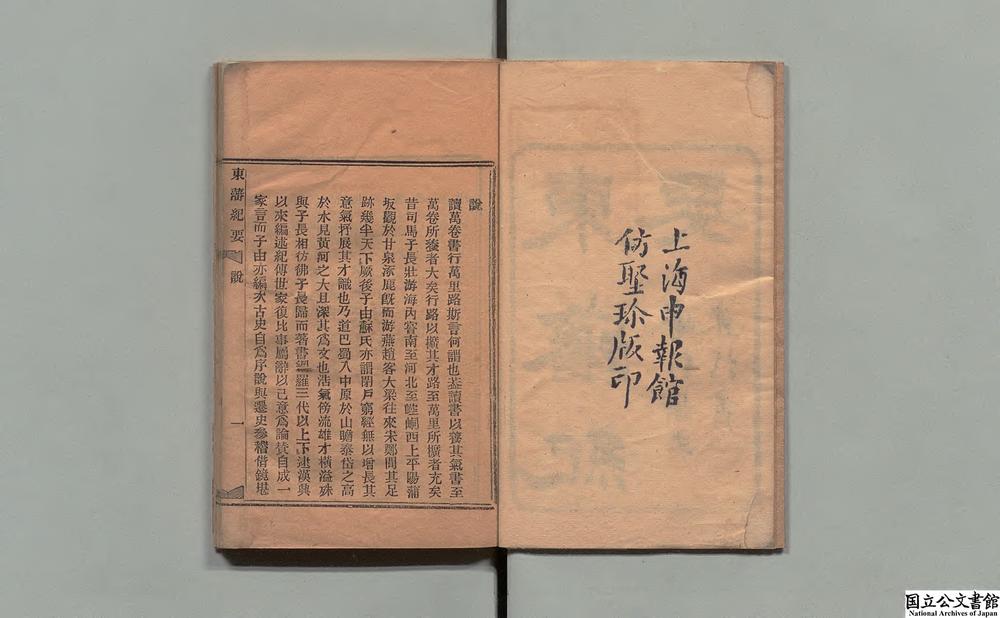 上海申報館
仿聚珍版印
說
讀萬卷書行萬里路斯言何謂也葢讀書以養其氣書至
萬卷所發者大矣行路以擴其才路至萬里所擴者充矣
昔司馬子長壯游海內窨南至河北至崆峒西上平陽蒲
坂觀於甘泉涿鹿旣而游燕趙客大梁往來宋鄭間其足
跡幾半天下厥後子由蘇氏亦謂閉戶窮經無以增長其
意氣抒展其才識也乃道巴蜀入中原於山瞻泰岱之高
於水見黃河之大且深其爲文也浩氣傍流雄才橫溢殊
與子長相彷彿子長歸而著書網羅三代以上下逮漢興
以來編述紀傳世家復比事屬辭以己意爲論贊自成一
家言而子由亦編次古史自爲序說與遷史參稽借鏡堪
東藩紀要
說
一
国立公文書館
National Archives of Japan